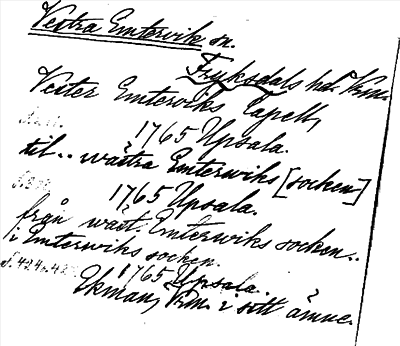 Vestra Emtervik sn.
Fryksdals hd. Vrm.
Vester Emterviks Capell,
1765 Upsala.
til.. wästra Emterwiks [socken]
1765 Upsala.
från wäst. Emterwiks socken..
i Emterwiks socken.
1765 Upsala.
Ekman, Vrm. i sitt ämne.